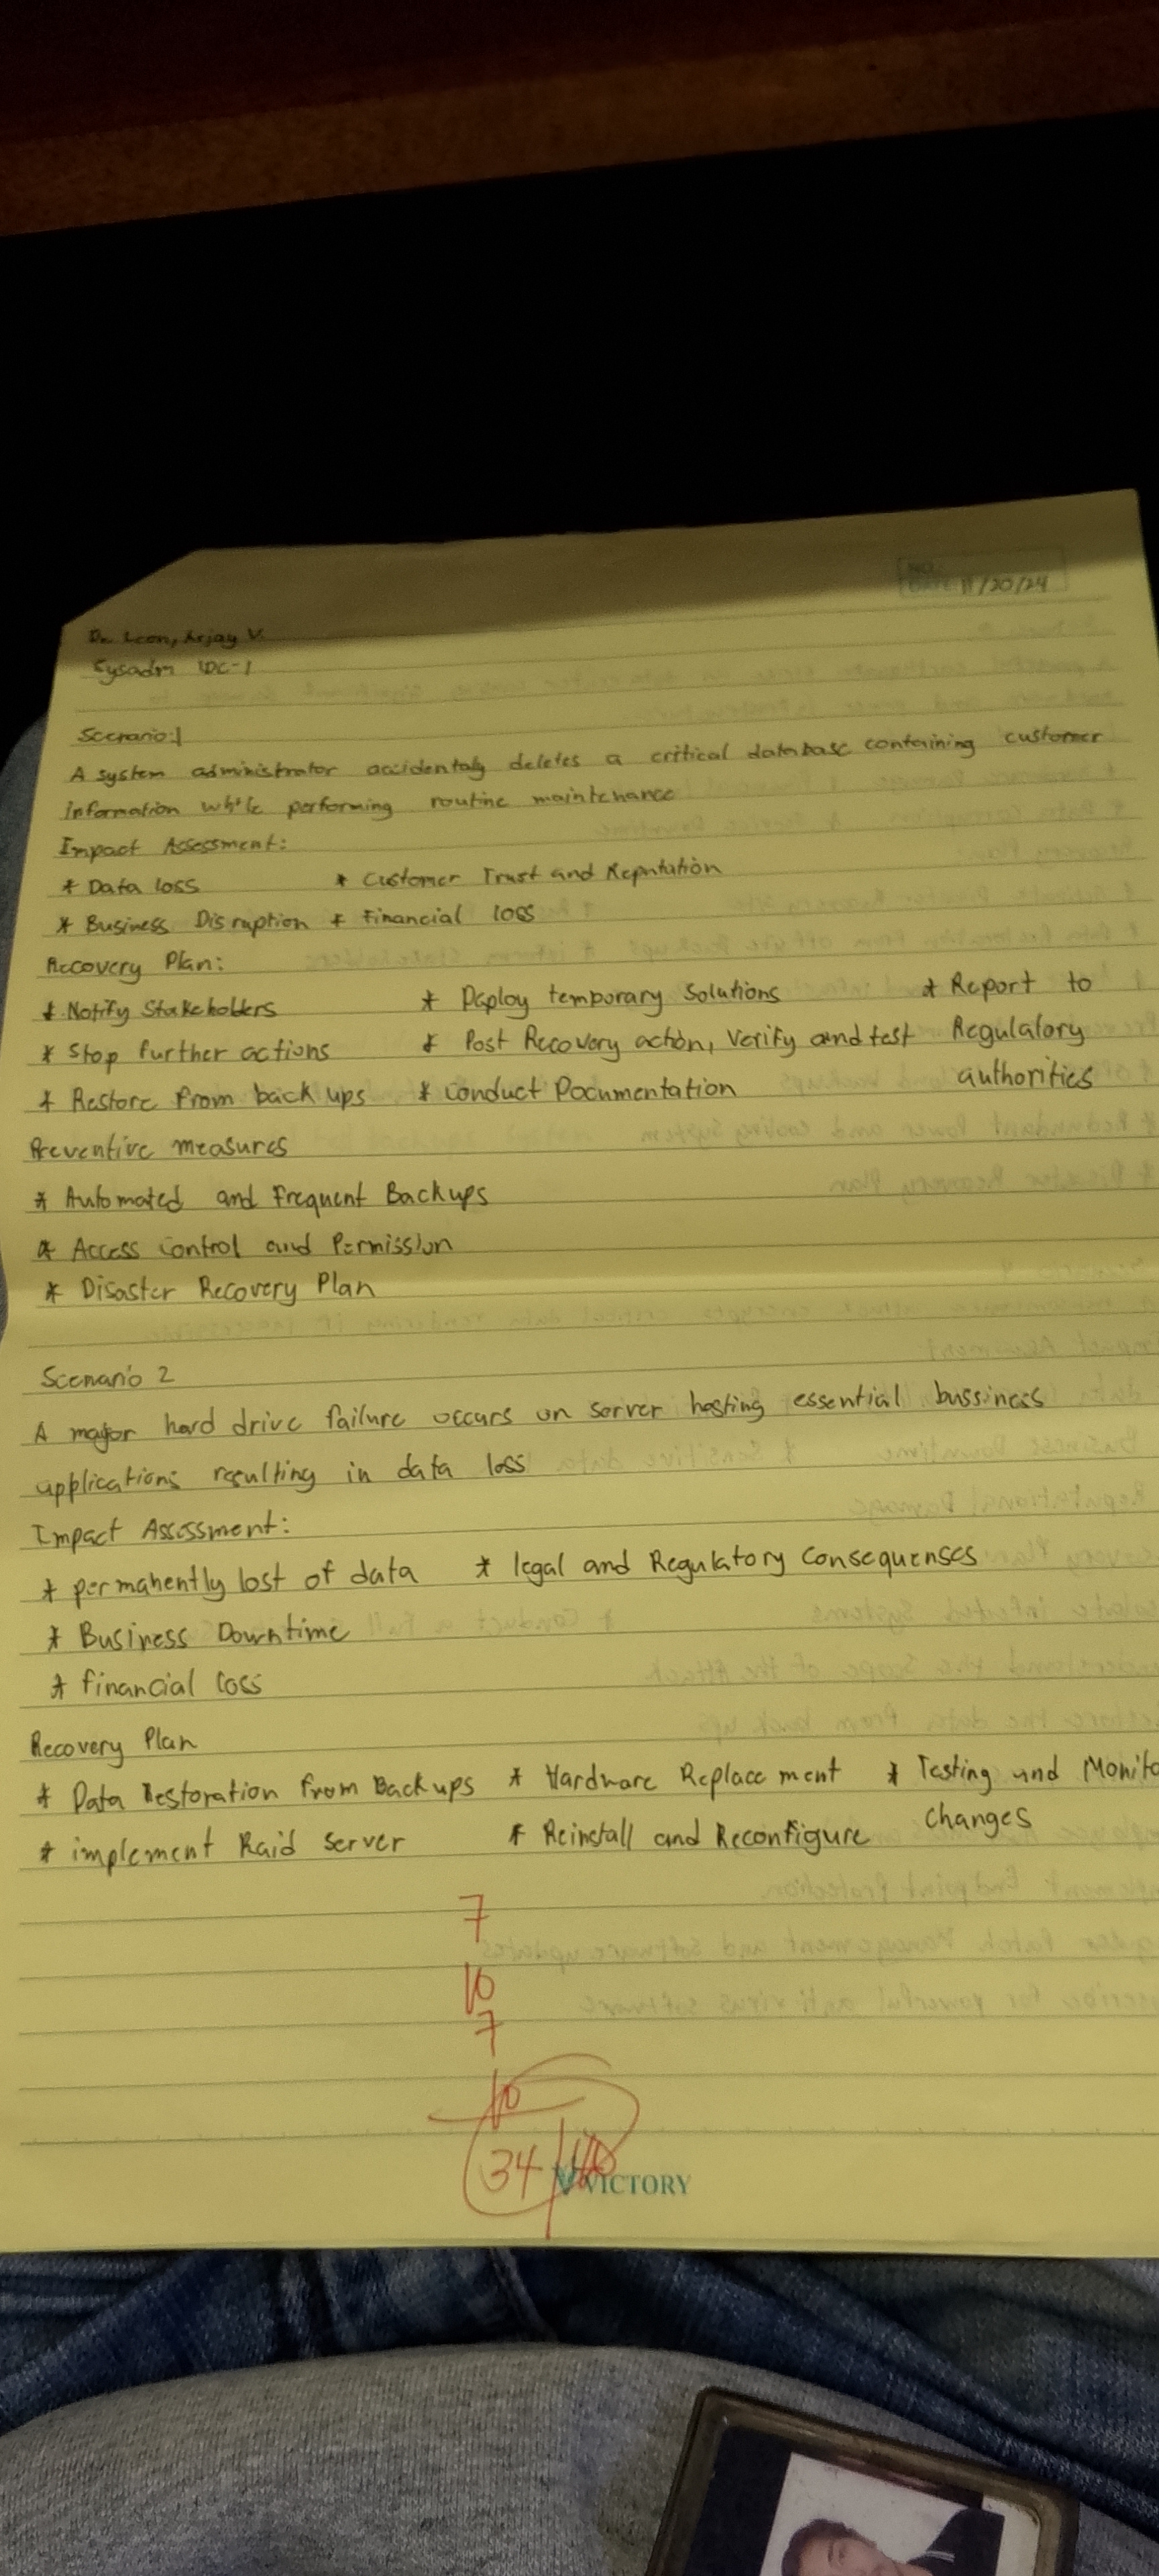 NO.
DATE 11/20/24
De Leon, Arjay V.
Sysadm IDC-1
Scenario:1
A system administrator accidentaly deletes a critical database containing customer
Information while performing routine maintenance
Impact Assessment:
* Data loss * Customer Trust and Reputation
* Business Disruption * Financial loss
Recovery Plan:
* Notify Stakeholders * Deploy temporary Solutions * Report to
* Stop further actions * Post Recovery action, Verify and test Regulatory
* Restore from back ups * Conduct Documentation authorities
Preventive measures
* Automated and Frequent Backups
* Access Control and Permission
* Disaster Recovery Plan
Scenario 2
A major hard drive failure occurs on server hosting essential bussiness
applications resulting in data loss
Impact Assessment:
* permanently lost of data * legal and Regulatory Consequenses
* Business Downtime
* financial loss
Recovery Plan
* Data Restoration from Backups * Hardware Replacement * Testing and Monito
* implement Raid server * Reinstall and Reconfigure changes
7
10
7
10
34/40
VICTORY